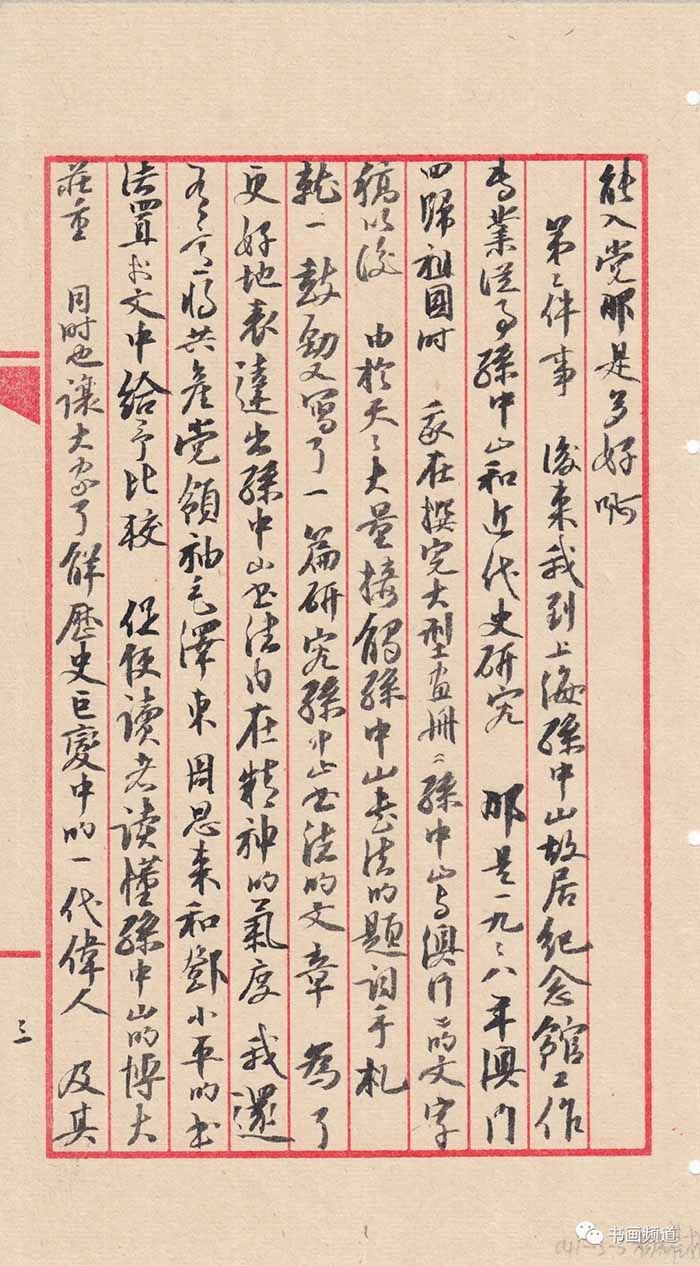 能入党那是多好啊
第二件事 后来我到上海孫中山故居纪念館工作
专業從事孫中山和近代史研究 那是一九九八年澳门
回归祖国时 我在撰完大型画册《孫中山与澳门》的文字
稿以後 由於天天大量接觸孫中山書法的題詞手札
就一鼓勁又寫了一篇研究孫中山书法的文章 為了
更好地表達出孫中山书法内在精神的氣度 我還
有意将共產党領袖毛澤東周恩来和鄧小平的书
法置於文中給予比较 促使读者读懂孫中山的博大
莊重 同时也讓大家了解歷史巨變中的一代偉人 及其
三
书画频道